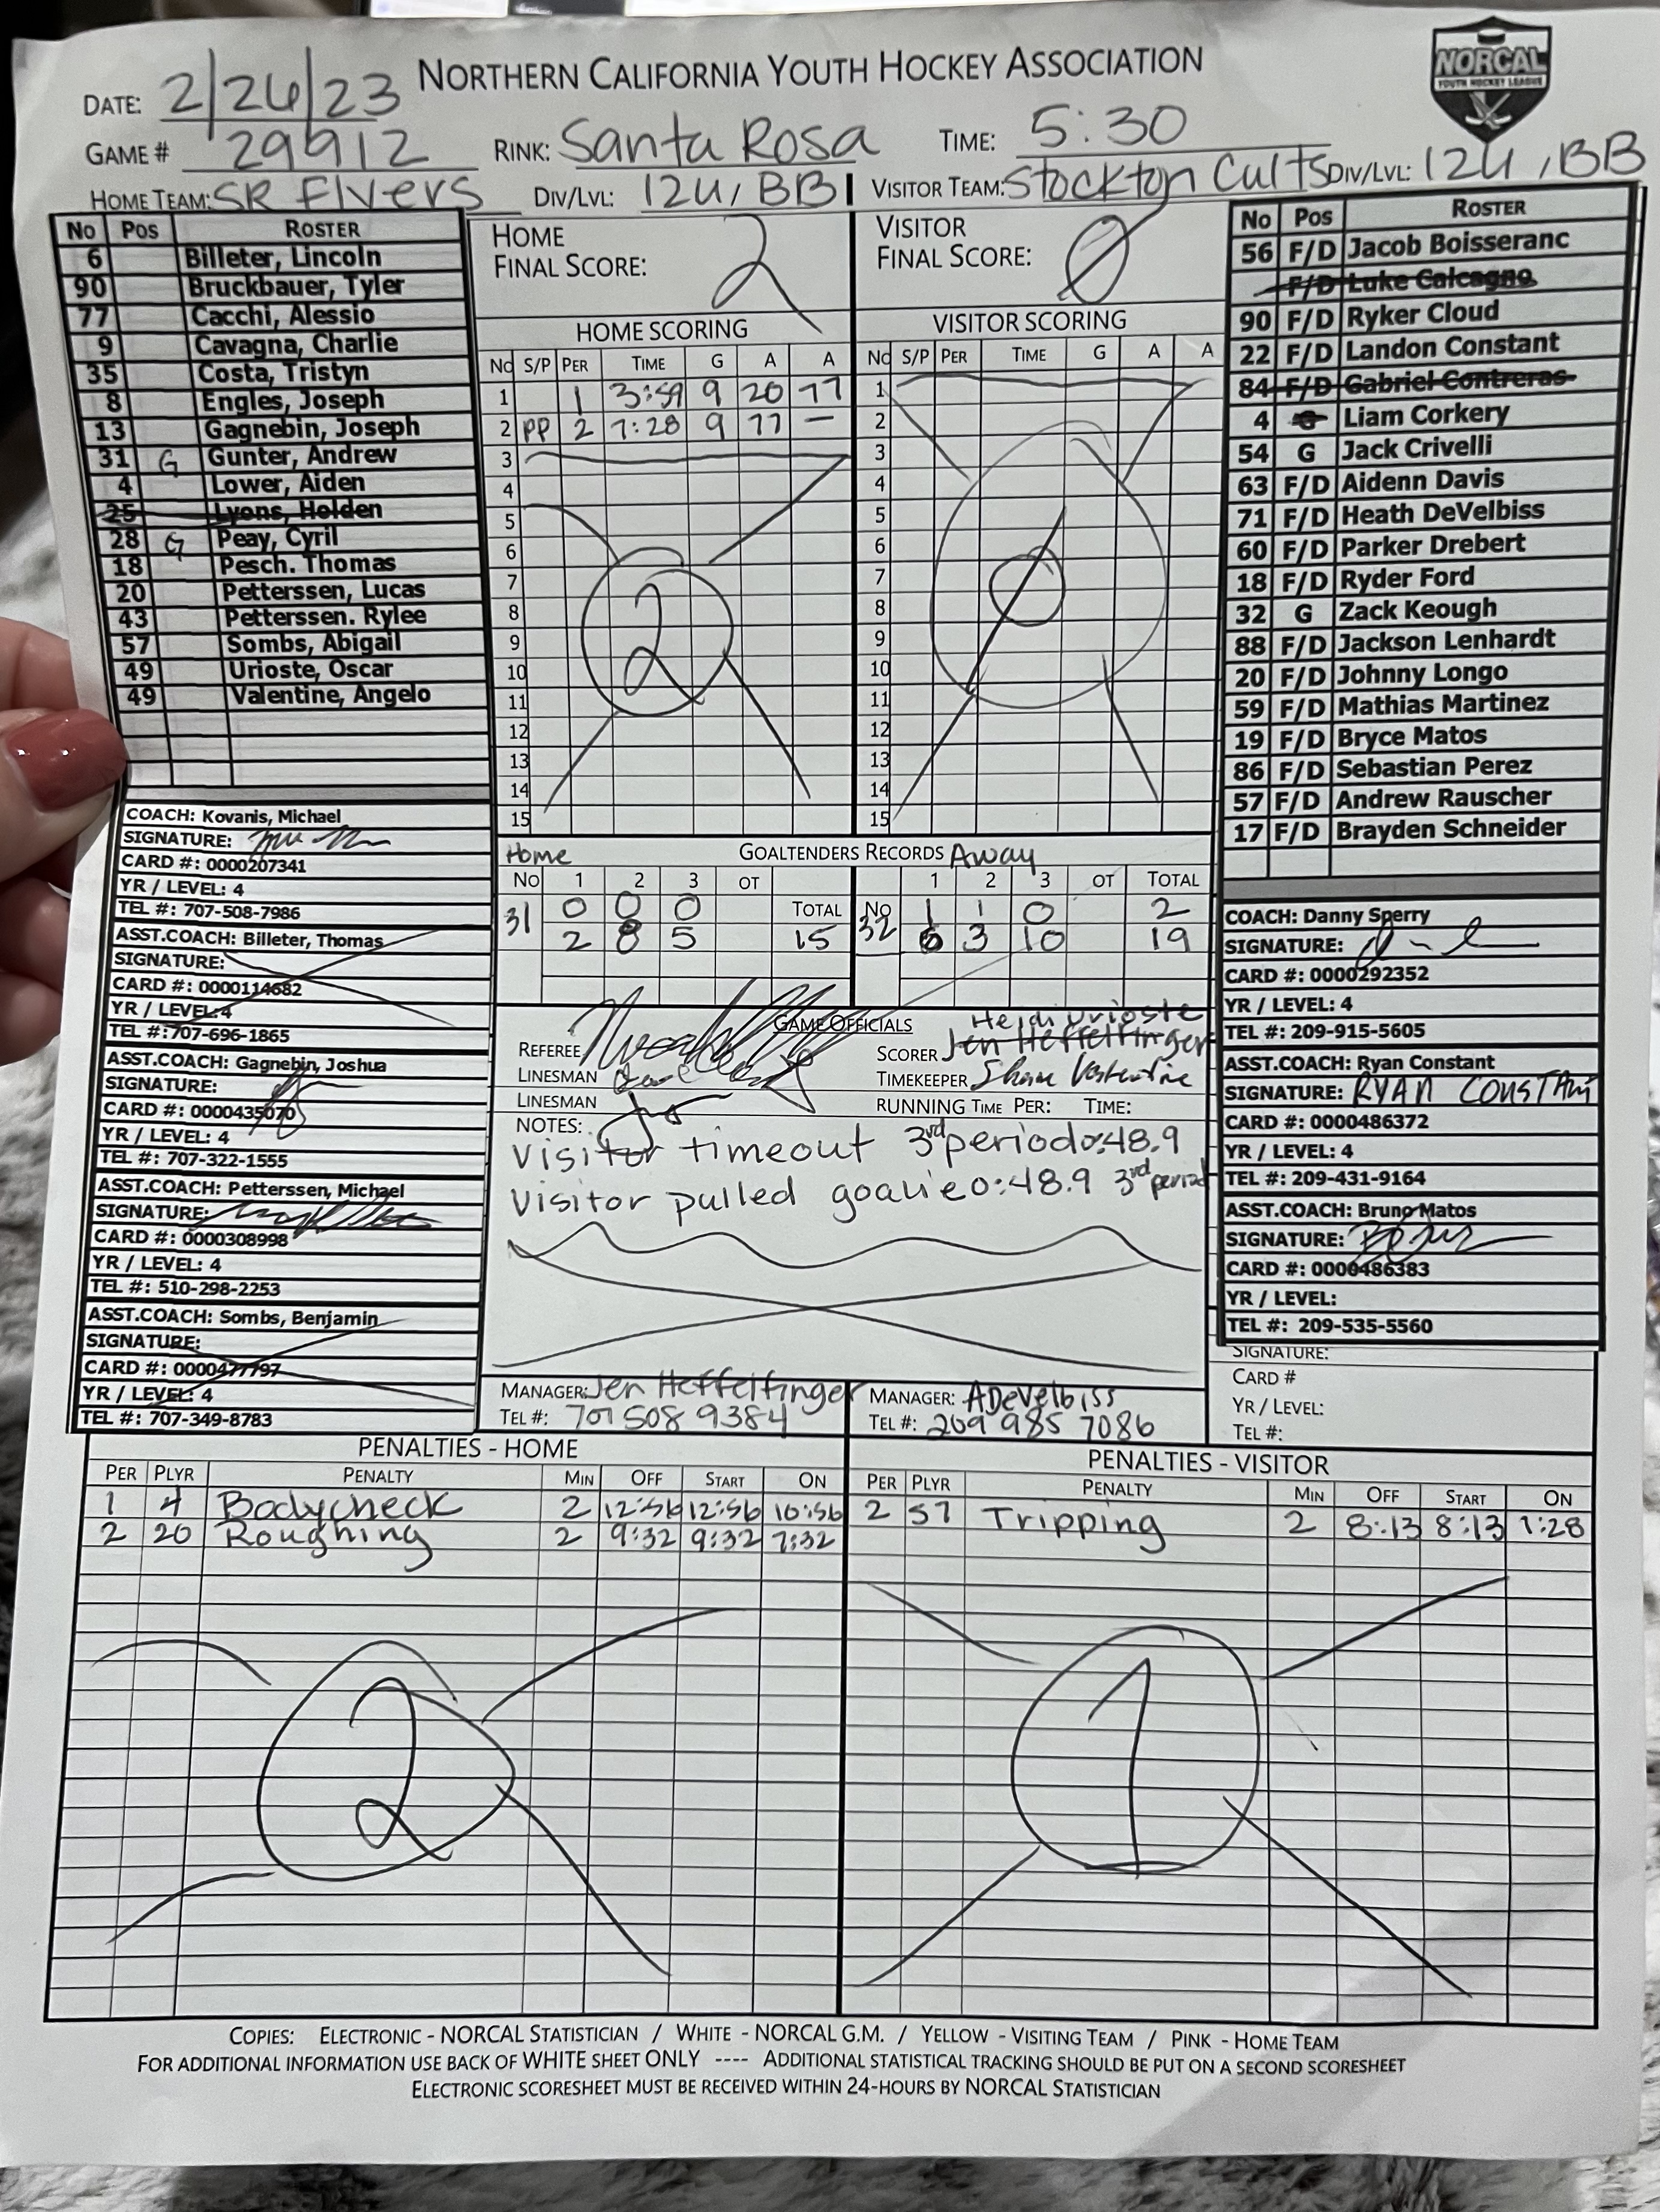 NORTHERN CALIFORNIA YOUTH HOCKEY ASSOCIATION
NORCAL
YOUTH HOCKEY LEAGUE
DATE: 2/26/23
GAME # 29912 RINK: Santa Rosa TIME: 5:30
HOME TEAM: SR Flyers DIV/LVL: 12U, BB VISITOR TEAM: Stockton Cults DIV/LVL: 12U, BB
No Pos ROSTER
6 Billeter, Lincoln
90 Bruckbauer, Tyler
77 Cacchi, Alessio
9 Cavagna, Charlie
35 Costa, Tristyn
8 Engles, Joseph
13 Gagnebin, Joseph
31 G Gunter, Andrew
4 Lower, Aiden
25 Lyons, Holden
28 G Peay, Cyril
18 Pesch. Thomas
20 Petterssen, Lucas
43 Petterssen. Rylee
57 Sombs, Abigail
49 Urioste, Oscar
49 Valentine, Angelo
COACH: Kovanis, Michael
SIGNATURE:
CARD #: 0000207341
YR / LEVEL: 4
TEL #: 707-508-7986
ASST.COACH: Billeter, Thomas
SIGNATURE:
CARD #: 0000114682
YR / LEVEL: 4
TEL #:707-696-1865
ASST.COACH: Gagnebin, Joshua
SIGNATURE:
CARD #: 0000435070
YR / LEVEL: 4
TEL #: 707-322-1555
ASST.COACH: Petterssen, Michael
SIGNATURE:
CARD #: 0000308998
YR / LEVEL: 4
TEL #: 510-298-2253
ASST.COACH: Sombs, Benjamin
SIGNATURE:
CARD #: 0000477797
YR / LEVEL: 4
TEL #: 707-349-8783
HOME
FINAL SCORE: 2
VISITOR
FINAL SCORE: 0
HOME SCORING
No S/P PER TIME G A A
1 1 3:59 9 20 77
2 PP 2 7:28 9 77 —
3
4
5
6
7
8
9
10
11
12
13
14
15
2
VISITOR SCORING
No S/P PER TIME G A A
1
2
3
4
5
6
7
8
9
10
11
12
13
14
15
0
Home GOALTENDERS RECORDS Away
NO 1 2 3 OT TOTAL
31 0 0 0
2 8 5 15
No 1 2 3 OT TOTAL
32 1 1 0 2
6 3 10 19
GAME OFFICIALS
REFEREE
LINESMAN
LINESMAN
Heidi Urioste
SCORER Jen Heffelfinger
TIMEKEEPER Shane Valentine
RUNNING TIME PER: TIME:
NOTES:
Visitor timeout 3rd period 0:48.9
Visitor pulled goalie 0:48.9 3rd period
MANAGER: Jen Heffelfinger
TEL #: 707 508 9384
MANAGER: ADeVelbiss
TEL #: 209 985 7086
No Pos ROSTER
56 F/D Jacob Boisseranc
F/D Luke Calcagno
90 F/D Ryker Cloud
22 F/D Landon Constant
84 F/D Gabriel Contreras
4 G Liam Corkery
54 G Jack Crivelli
63 F/D Aidenn Davis
71 F/D Heath DeVelbiss
60 F/D Parker Drebert
18 F/D Ryder Ford
32 G Zack Keough
88 F/D Jackson Lenhardt
20 F/D Johnny Longo
59 F/D Mathias Martinez
19 F/D Bryce Matos
86 F/D Sebastian Perez
57 F/D Andrew Rauscher
17 F/D Brayden Schneider
COACH: Danny Sperry
SIGNATURE:
CARD #: 0000292352
YR / LEVEL: 4
TEL #: 209-915-5605
ASST.COACH: Ryan Constant
SIGNATURE: RYAN CONSTANT
CARD #: 0000486372
YR / LEVEL: 4
TEL #: 209-431-9164
ASST.COACH: Bruno Matos
SIGNATURE:
CARD #: 0000486383
YR / LEVEL:
TEL #: 209-535-5560
SIGNATURE:
CARD #
YR / LEVEL:
TEL #:
PENALTIES - HOME
PER PLYR PENALTY MIN OFF START ON
1 4 Bodycheck 2 12:56 12:56 10:56
2 20 Roughing 2 9:32 9:32 7:32
2
PENALTIES - VISITOR
PER PLYR PENALTY MIN OFF START ON
2 57 Tripping 2 8:13 8:13 7:28
1
COPIES: ELECTRONIC - NORCAL STATISTICIAN / WHITE - NORCAL G.M. / YELLOW - VISITING TEAM / PINK - HOME TEAM
FOR ADDITIONAL INFORMATION USE BACK OF WHITE SHEET ONLY ---- ADDITIONAL STATISTICAL TRACKING SHOULD BE PUT ON A SECOND SCORESHEET
ELECTRONIC SCORESHEET MUST BE RECEIVED WITHIN 24-HOURS BY NORCAL STATISTICIAN